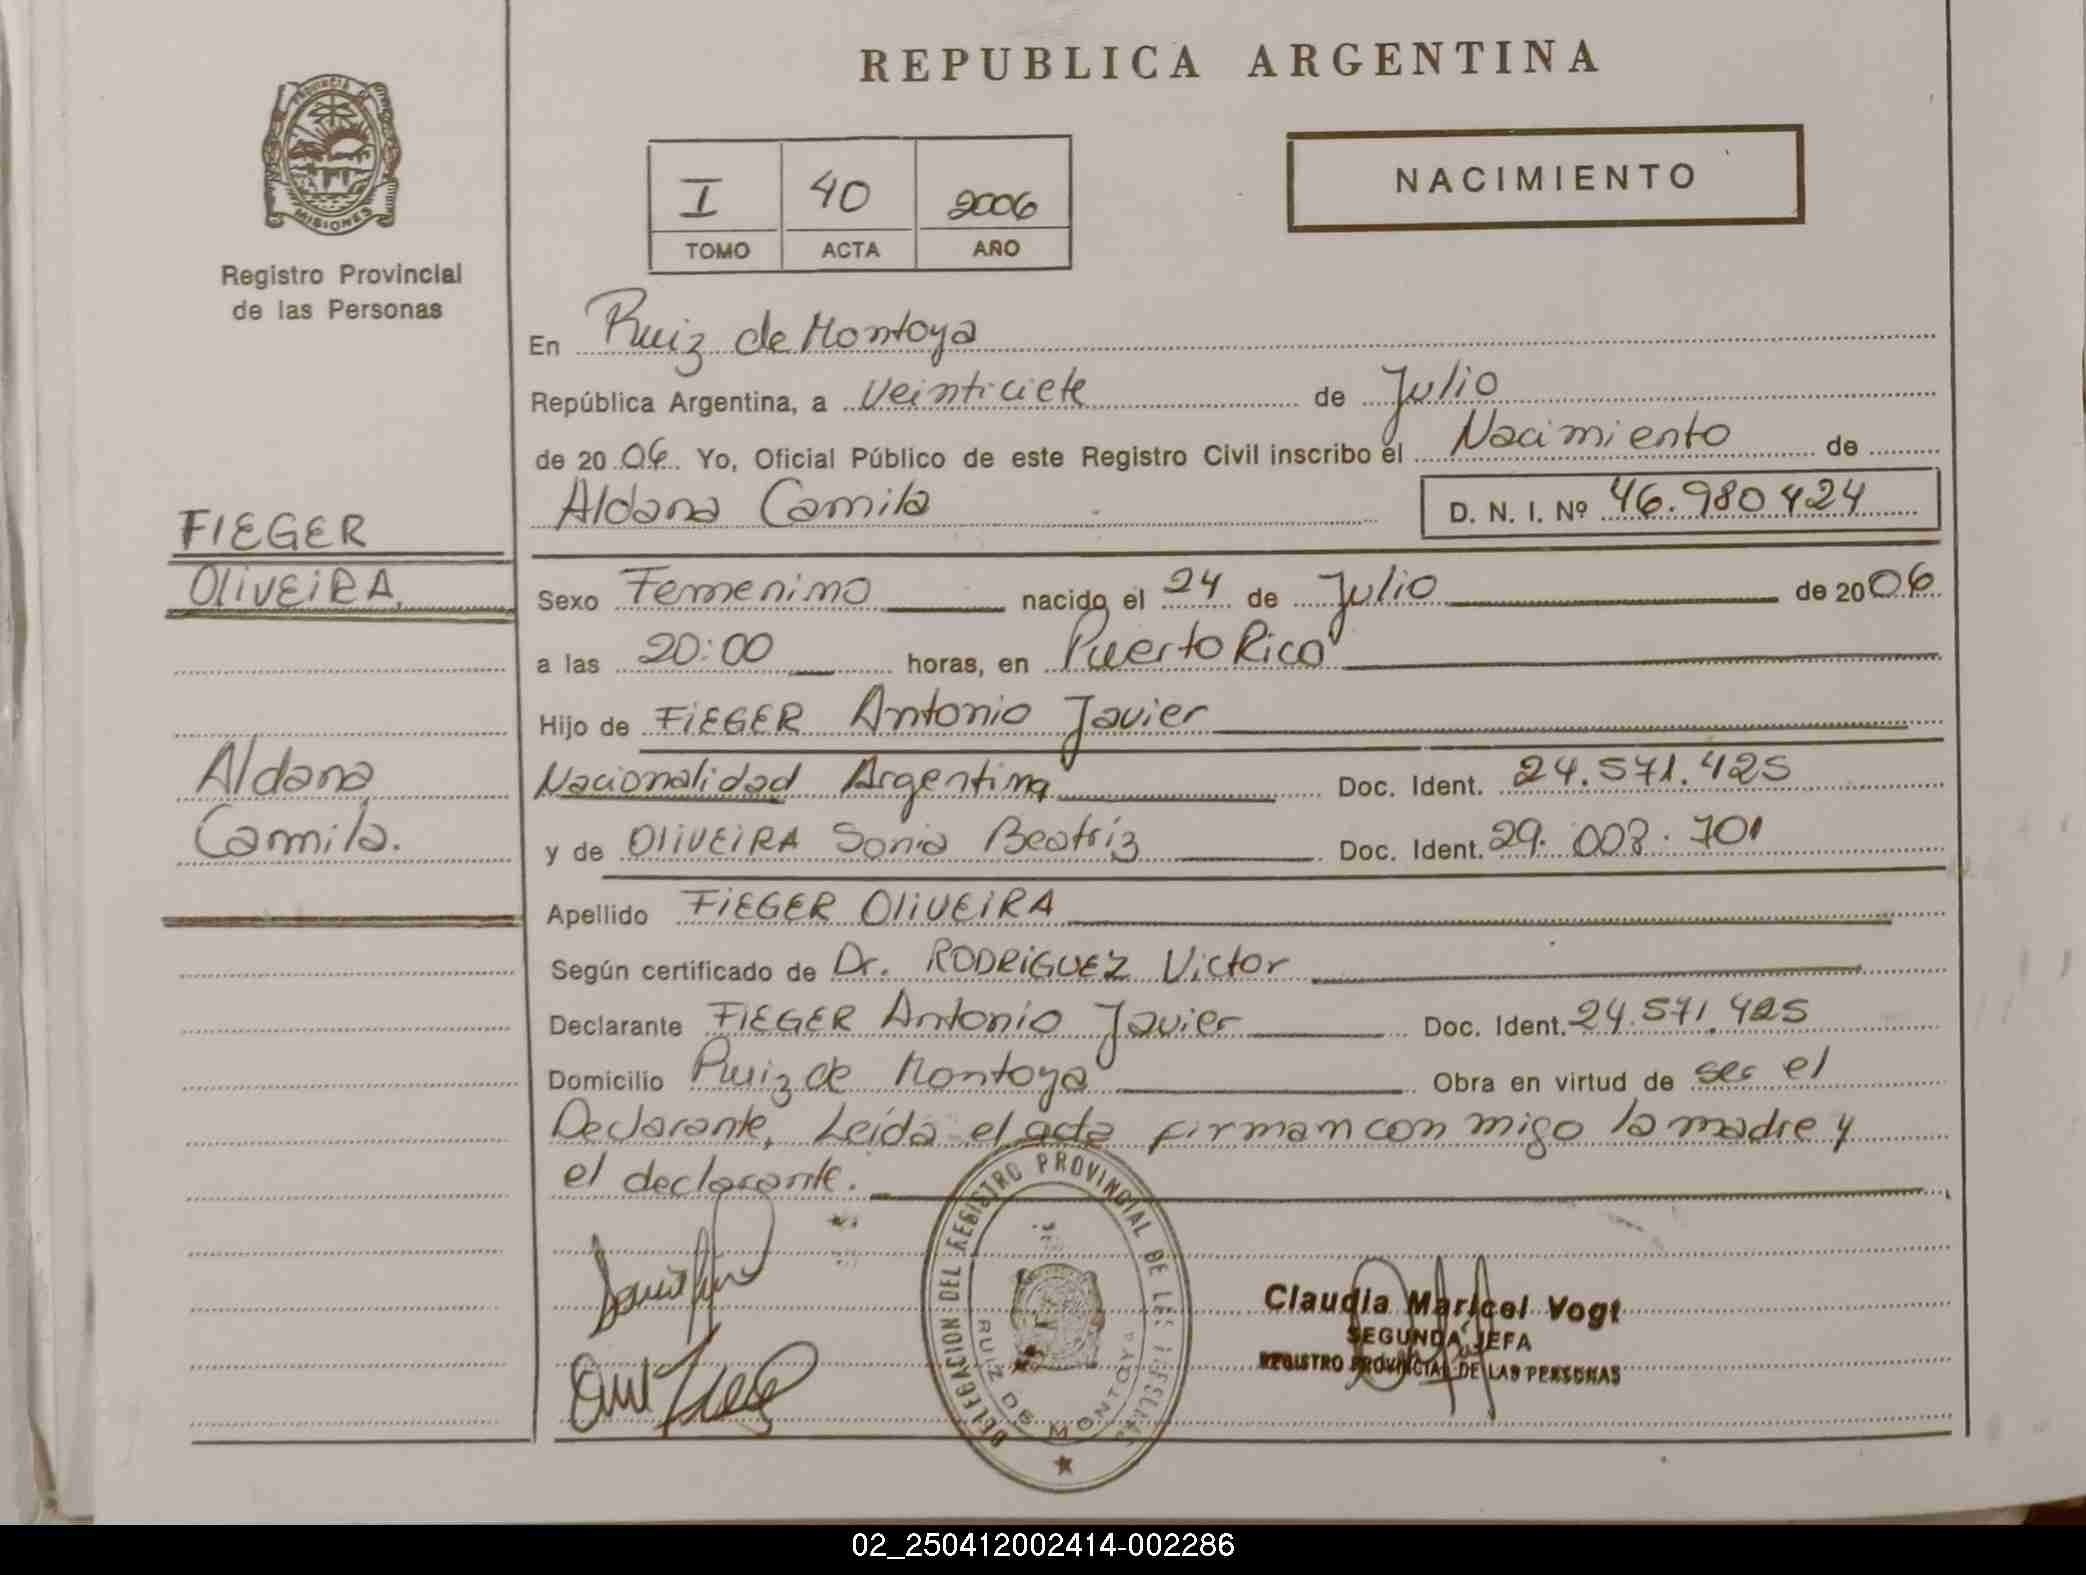 REPUBLICA ARGENTINA
PROVINCIA DE
MISIONES
Registro Provincial
de las Personas
I 40 2006
TOMO ACTA AÑO
NACIMIENTO
En Ruiz de Montoya
República Argentina, a veinticiete de Julio
de 2006 Yo, Oficial Público de este Registro Civil inscribo el Nacimiento de
Aldana Camila D. N. I. Nº 46.980424
FIEGER
OLIVEIRA
Aldana
Camila.
Sexo Femenino nacido el 24 de Julio de 2006
a las 20:00 horas, en Puerto Rico
Hijo de FIEGER Antonio Javier
Nacionalidad Argentina Doc. Ident. 24.571.425
y de OLIVEIRA Sonia Beatríz Doc. Ident. 29.008.701
Apellido FIEGER OLIVEIRA
Según certificado de Dr. RODRIGUEZ Victor
Declarante FIEGER Antonio Javier Doc. Ident. 24.571.425
Domicilio Ruiz de Montoya Obra en virtud de ser el
Declarante, Leída el acta firman con migo la madre y
el declarante.
DELEGACION DEL REGISTRO PROVINCIAL DE LAS PERSONAS
RUIZ DE MONTOYA
Claudia Maricel Vogt
SEGUNDA JEFA
REGISTRO PROVINCIAL DE LAS PERSONAS
02_250412002414-002286